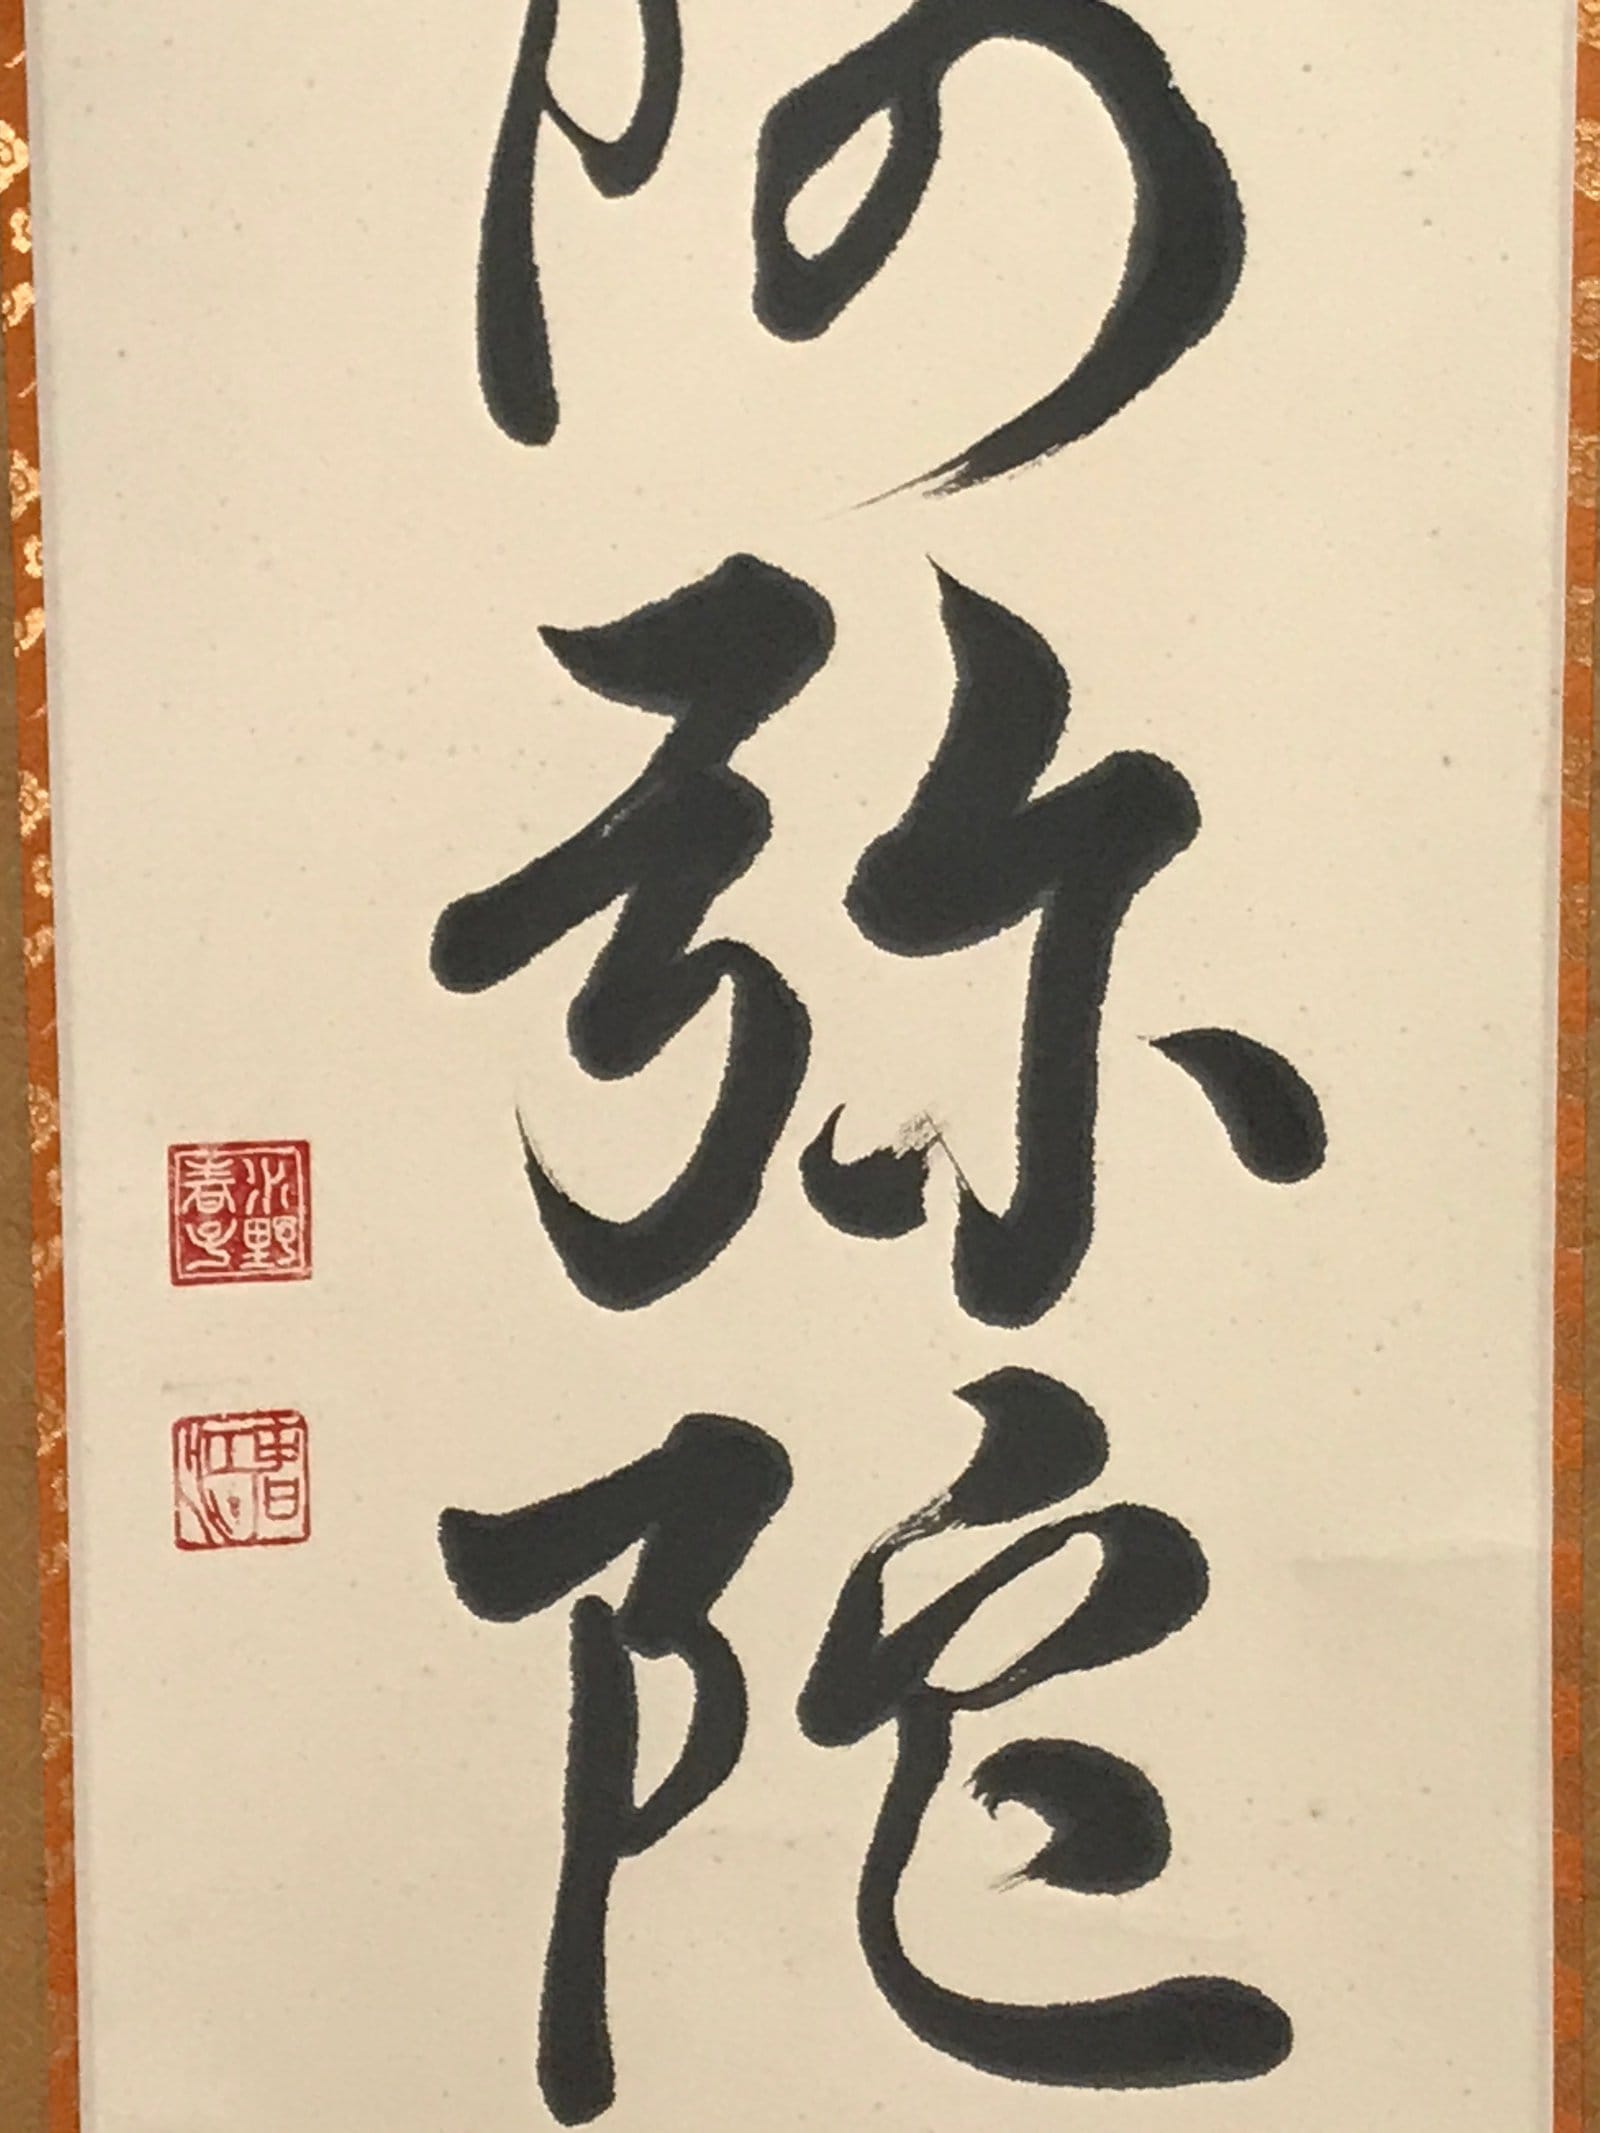 阿弥陀
水野
春子